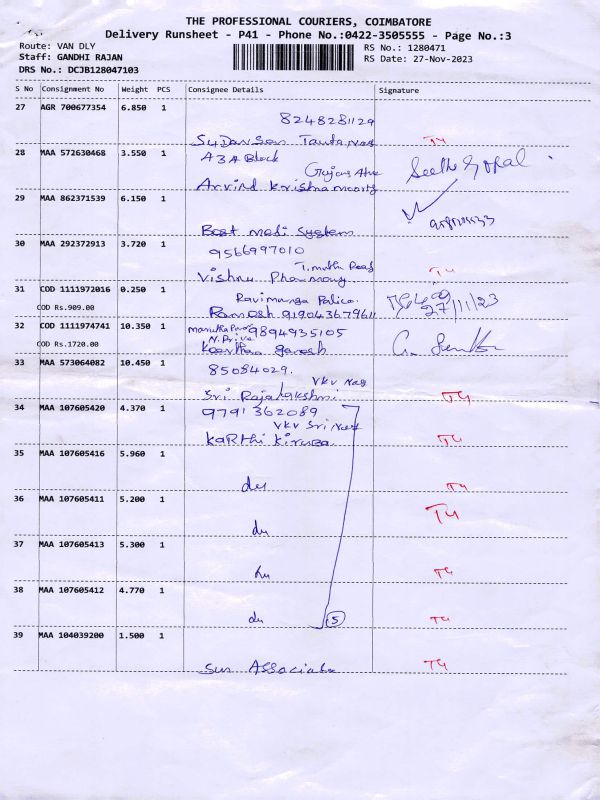 THE PROFESSIONAL COURIERS, COIMBATORE
Delivery Runsheet - P41 - Phone No.:0422-3505555 - Page No.:3
Route: VAN DLY
RS No.: 1280471
Staff: GANDHI RAJAN
RS Date: 27-Nov-2023
DRS No.: DCJB128047103
S No Consignment No Weight PCS Consignee Details Signature
27 AGR 700677354 6.850 1
8248281129
T4
28 MAA 572630468 3.550 1
A3A Block
Arvind Krishnamoorty
29 MAA 862371539 6.150 1
Best Medi System
30 MAA 292372913 3.720 1
9566997010
Road
Vishnu T4
31 COD 1111972016 0.250 1
COD Rs.909.00
Ramesh 919043679611
27/11/23
32 COD 1111974741 10.350 1
9894935105
COD Rs.1720.00
ganesh
33 MAA 573064082 10.450 1
85084029.
VKV Nag
Sri Rajalakshmi T4
34 MAA 107605420 4.370 1
9791362089
VKV Sri Nag
KaRthi T4
35 MAA 107605416 5.960 1
du T4
36 MAA 107605411 5.200 1
du T4
37 MAA 107605413 5.300 1
du T4
38 MAA 107605412 4.770 1
du 5 T4
39 MAA 104039200 1.500 1
Sun Associate T4